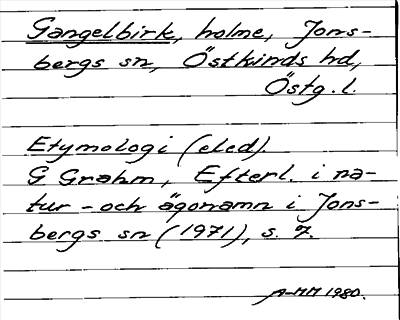 Gangelbirk, holme, Jons-
bergs sn, Östkinds hd,
Östg. l.
Etymologi (eled).
G Grahm, Efterl. i na-
tur- och ägonamn i Jons-
bergs sn (1971), s. 7.
A-MH 1980.